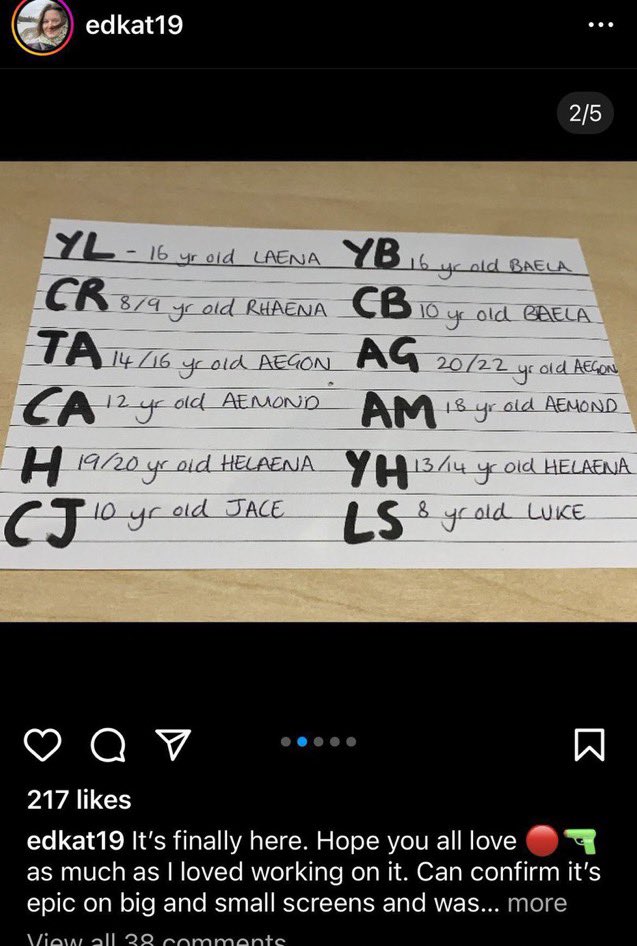 edkat19
2/5
YL - 16 yr old LAENA YB 16 yr old BAELA
CR 8/9 yr old RHAENA CB 10 yr old BAELA
TA 14/16 yr old AEGON AG 20/22 yr old AEGON
CA 12 yr old AEMOND AM 18 yr old AEMOND
H 19/20 yr old HELAENA YH 13/14 yr old HELAENA
CJ 10 yr old JACE LS 8 yr old LUKE
217 likes
edkat19 It’s finally here. Hope you all love 🔴🔫
as much as I loved working on it. Can confirm it’s
epic on big and small screens and was... more
View all 38 comments